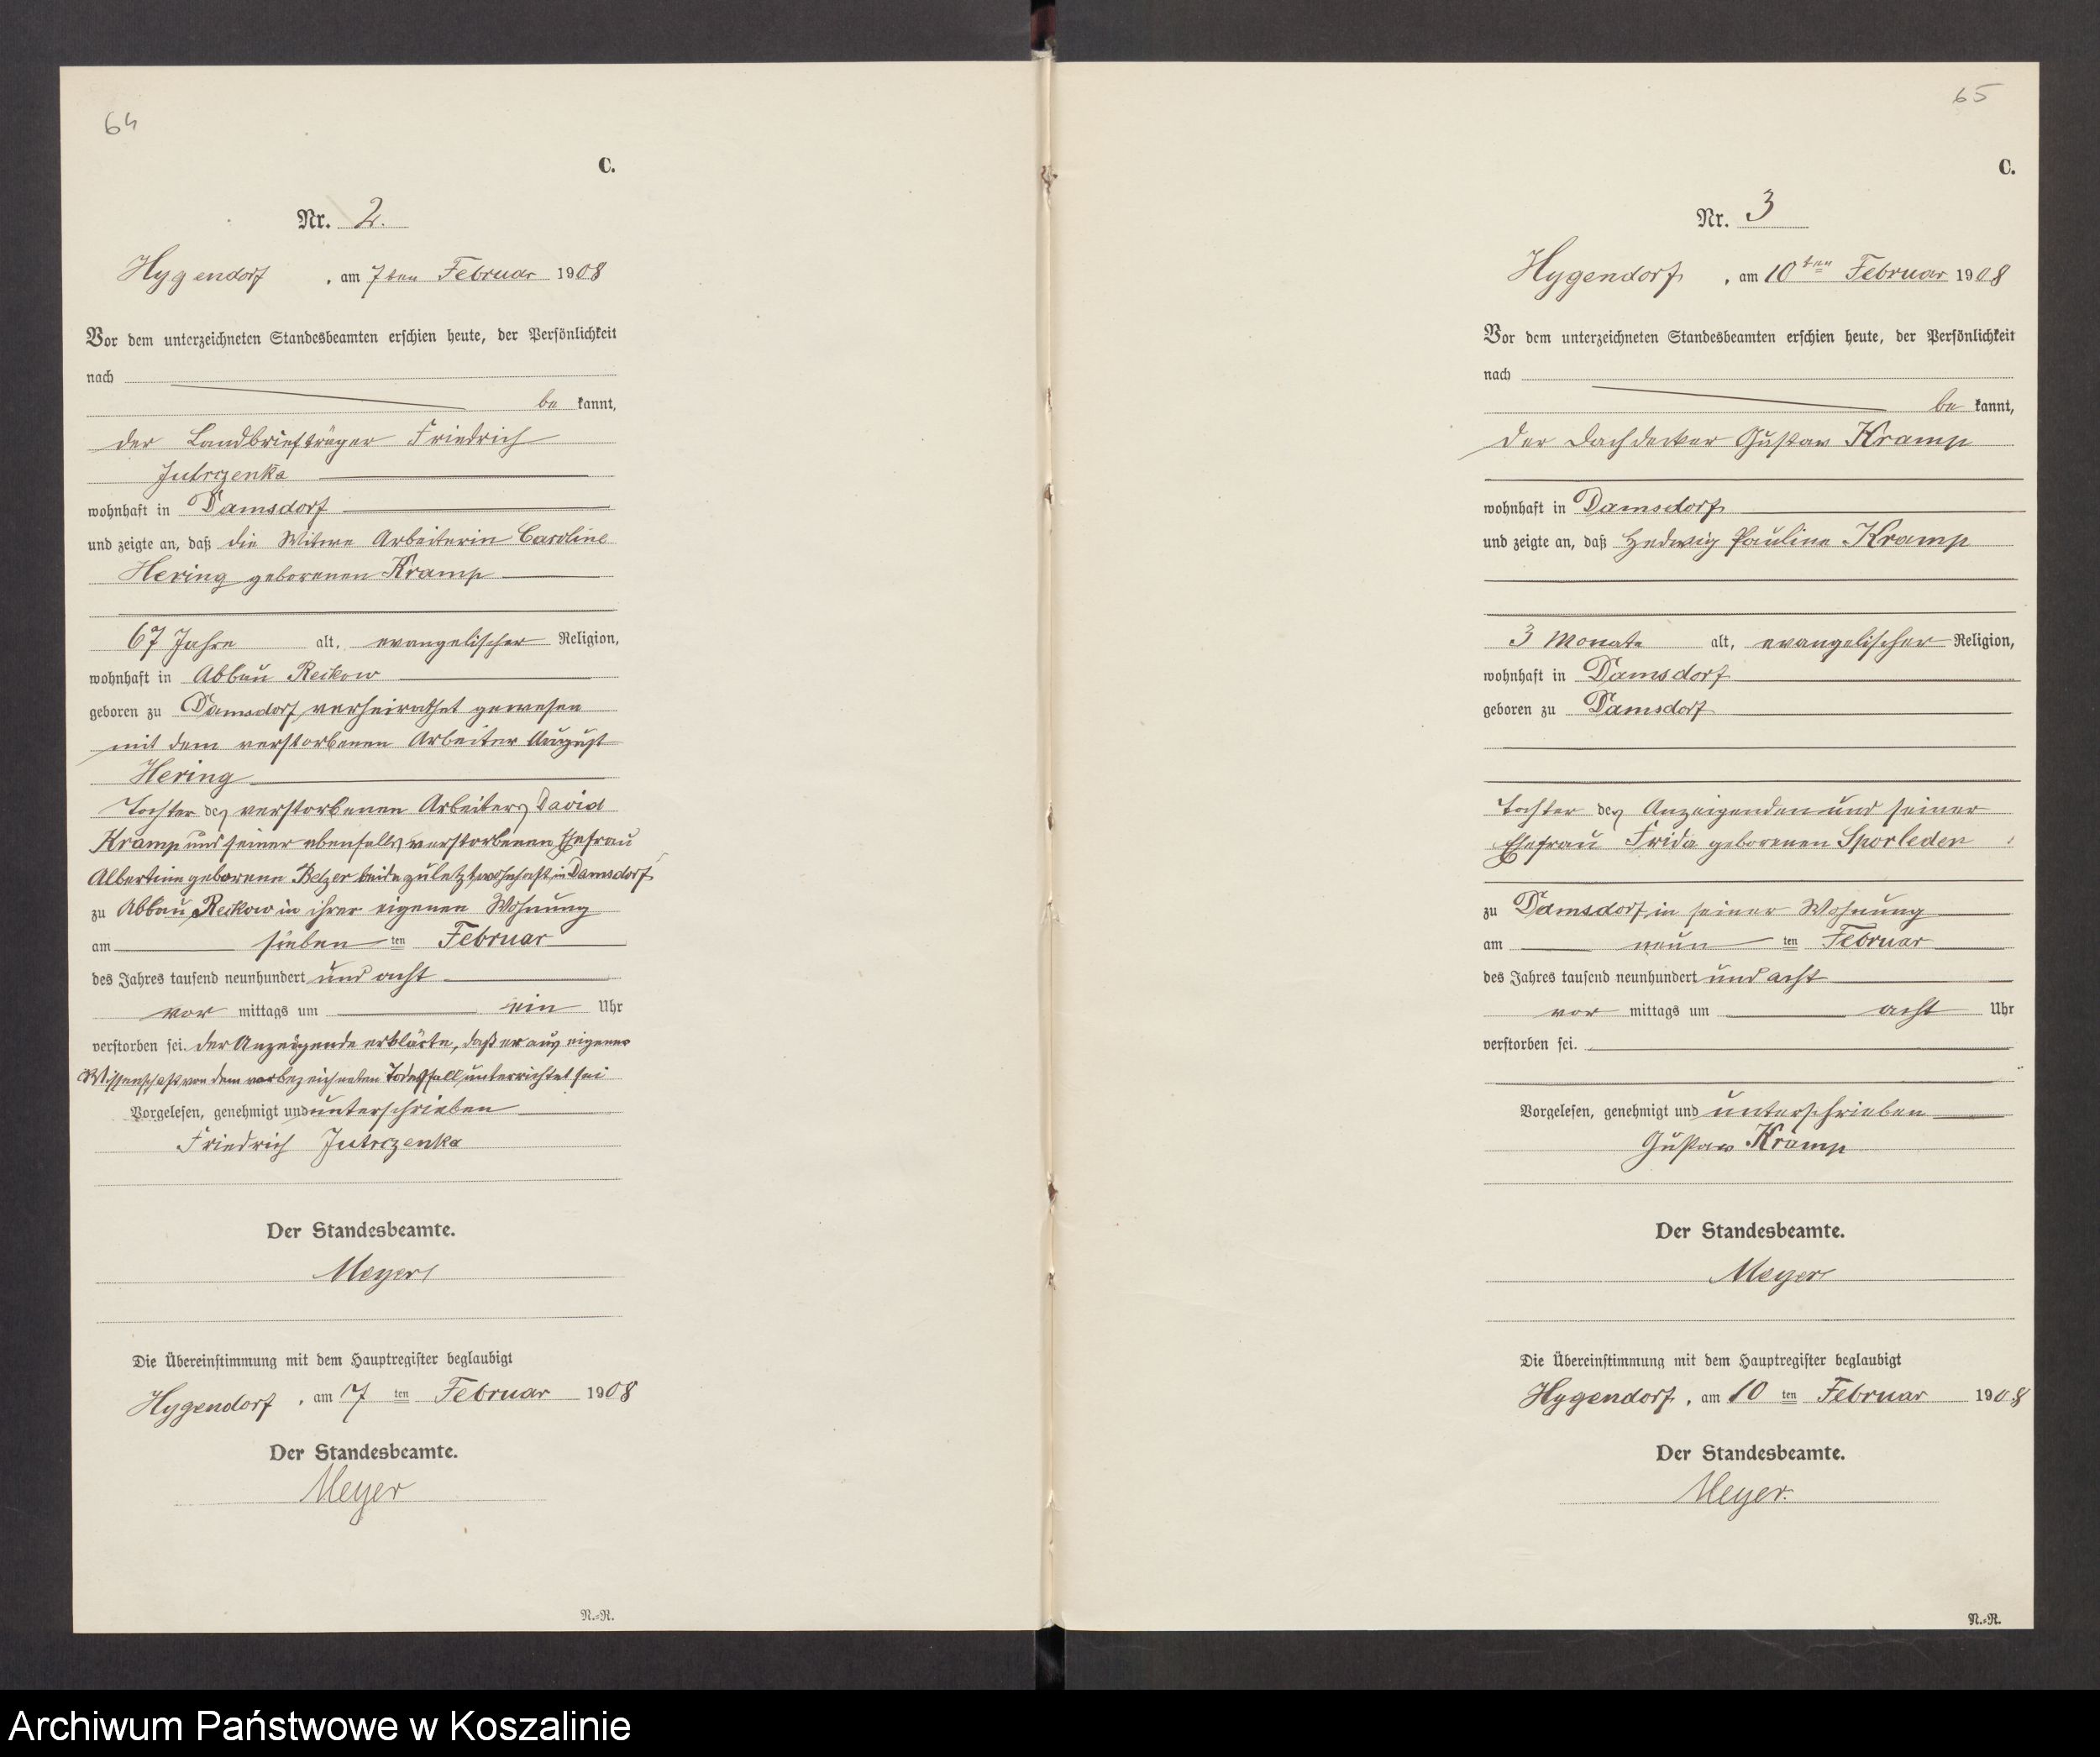 64
C.
Nr. 2.
Hygendorf, am 7ten Februar 1908
Vor dem unterzeichneten Standesbeamten erschien heute, der Persönlichkeit
nach
be kannt,
der Landbriefträger Friedrich
Jutrzenka
wohnhaft in Damsdorf
und zeigte an, daß die Witwe Arbeiterin Caroline
Hering geborenen Kramp
67 Jahre alt, evangelischer Religion,
wohnhaft in Abbau Reckow
geboren zu Damsdorf, verheirathet gewesen
mit dem verstorbenen Arbeiter August
Hering
Tochter des verstorbenen Arbeiters David
Kramp und seiner ebenfalls verstorbenen Ehefrau
Albertine geborene Belzer beide zuletzt wohnhaft in Damsdorf
zu Abbau Reckow in ihrer eigenen Wohnung
am sieben ten Februar
des Jahres tausend neunhundert und acht
vor mittags um ein Uhr
verstorben sei. der Anzeigende erklärte, daß er aus eigener
Wissenschaft von dem vorbezeichneten Todesfall unterrichtet sei
Vorgelesen, genehmigt und unterschrieben
Friedrich Jutrzenka
Der Standesbeamte.
Meyer
Die Übereinstimmung mit dem Hauptregister beglaubigt
Hygendorf, am 7 ten Februar 1908
Der Standesbeamte.
Meyer
N.=R.
65
C.
Nr. 3
Hygendorf, am 10ten Februar 1908
Vor dem unterzeichneten Standesbeamten erschien heute, der Persönlichkeit
nach
be kannt,
der Dachdecker Gustav Kramp
wohnhaft in Damsdorf
und zeigte an, daß Hedwig Pauline Kramp
3 Monate alt, evangelischer Religion,
wohnhaft in Damsdorf
geboren zu Damsdorf
Tochter des Anzeigenden und seiner
Ehefrau Frida geborenen Sporleder
zu Damsdorf in seiner Wohnung
am neun ten Februar
des Jahres tausend neunhundert und acht
vor mittags um acht Uhr
verstorben sei.
Vorgelesen, genehmigt und unterschrieben
Gustav Kramp
Der Standesbeamte.
Meyer
Die Übereinstimmung mit dem Hauptregister beglaubigt
Hygendorf, am 10 ten Februar 1908
Der Standesbeamte.
Meyer.
N.=R.
Archiwum Państwowe w Koszalinie